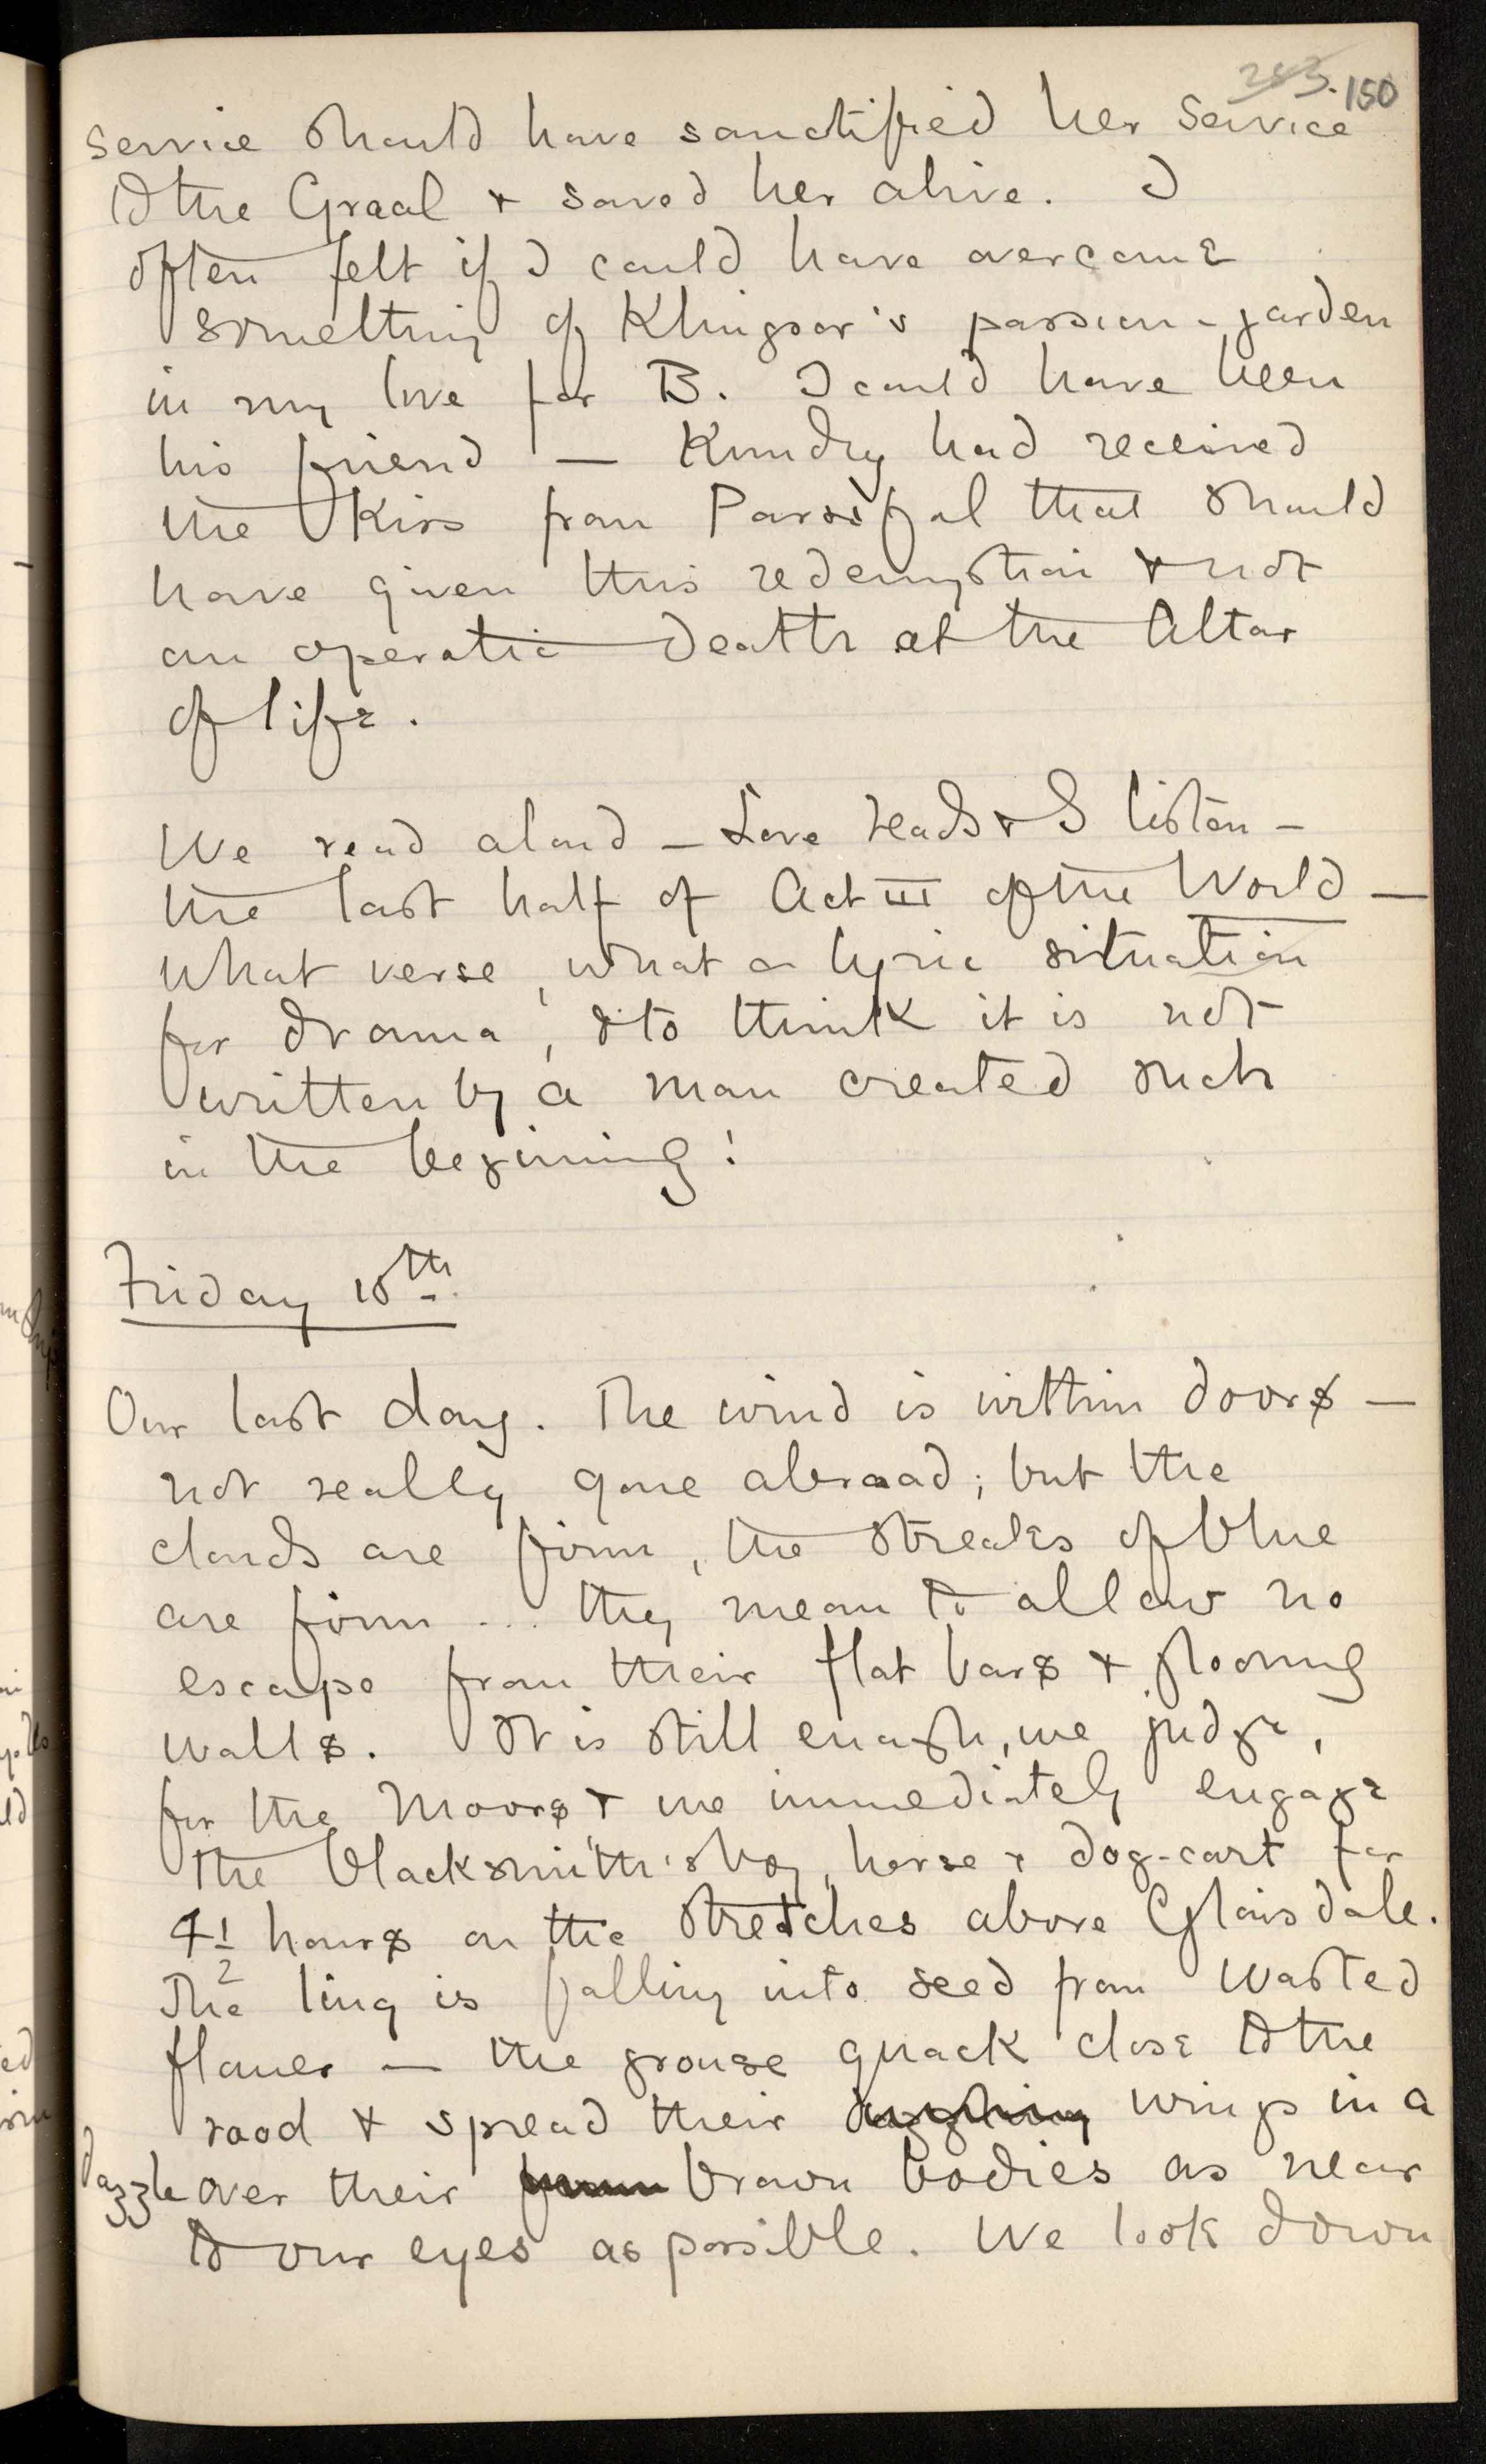 283. 150
service should have sanctified her service
to the Graal & saved her alive. I
often felt if I could have overcome
something of Klingsor's passion-garden
in my love for B. I could have been
his friend — Kundry had received
the Kiss from Parsifal that should
have given this redemption & not
an operatic death at the Altar
of life.
We read aloud — Love reads & I listen —
the last half of Act III of the World —
what verse, what a lyric situation
for drama, & to think it is not
written by a man created such
in the begining!
Friday 18th
Our last day. The wind is within doors —
not really gone abroad; but the
clouds are firm, the streaks of blue
are firm ... they mean to allow no
escape from their flat bars &
walls. It is still enough, we judge,
for the Moors & we immediately engage
the blacksmith's boy, horse & dog-cart for
4½ hours on the stretches above Glaisdale.
The ling is falling into seed from wasted
flower — the grouse quack close to the
road & spread their wings in a
dazzle over their brown bodies as near
to our eyes as possible. We look down